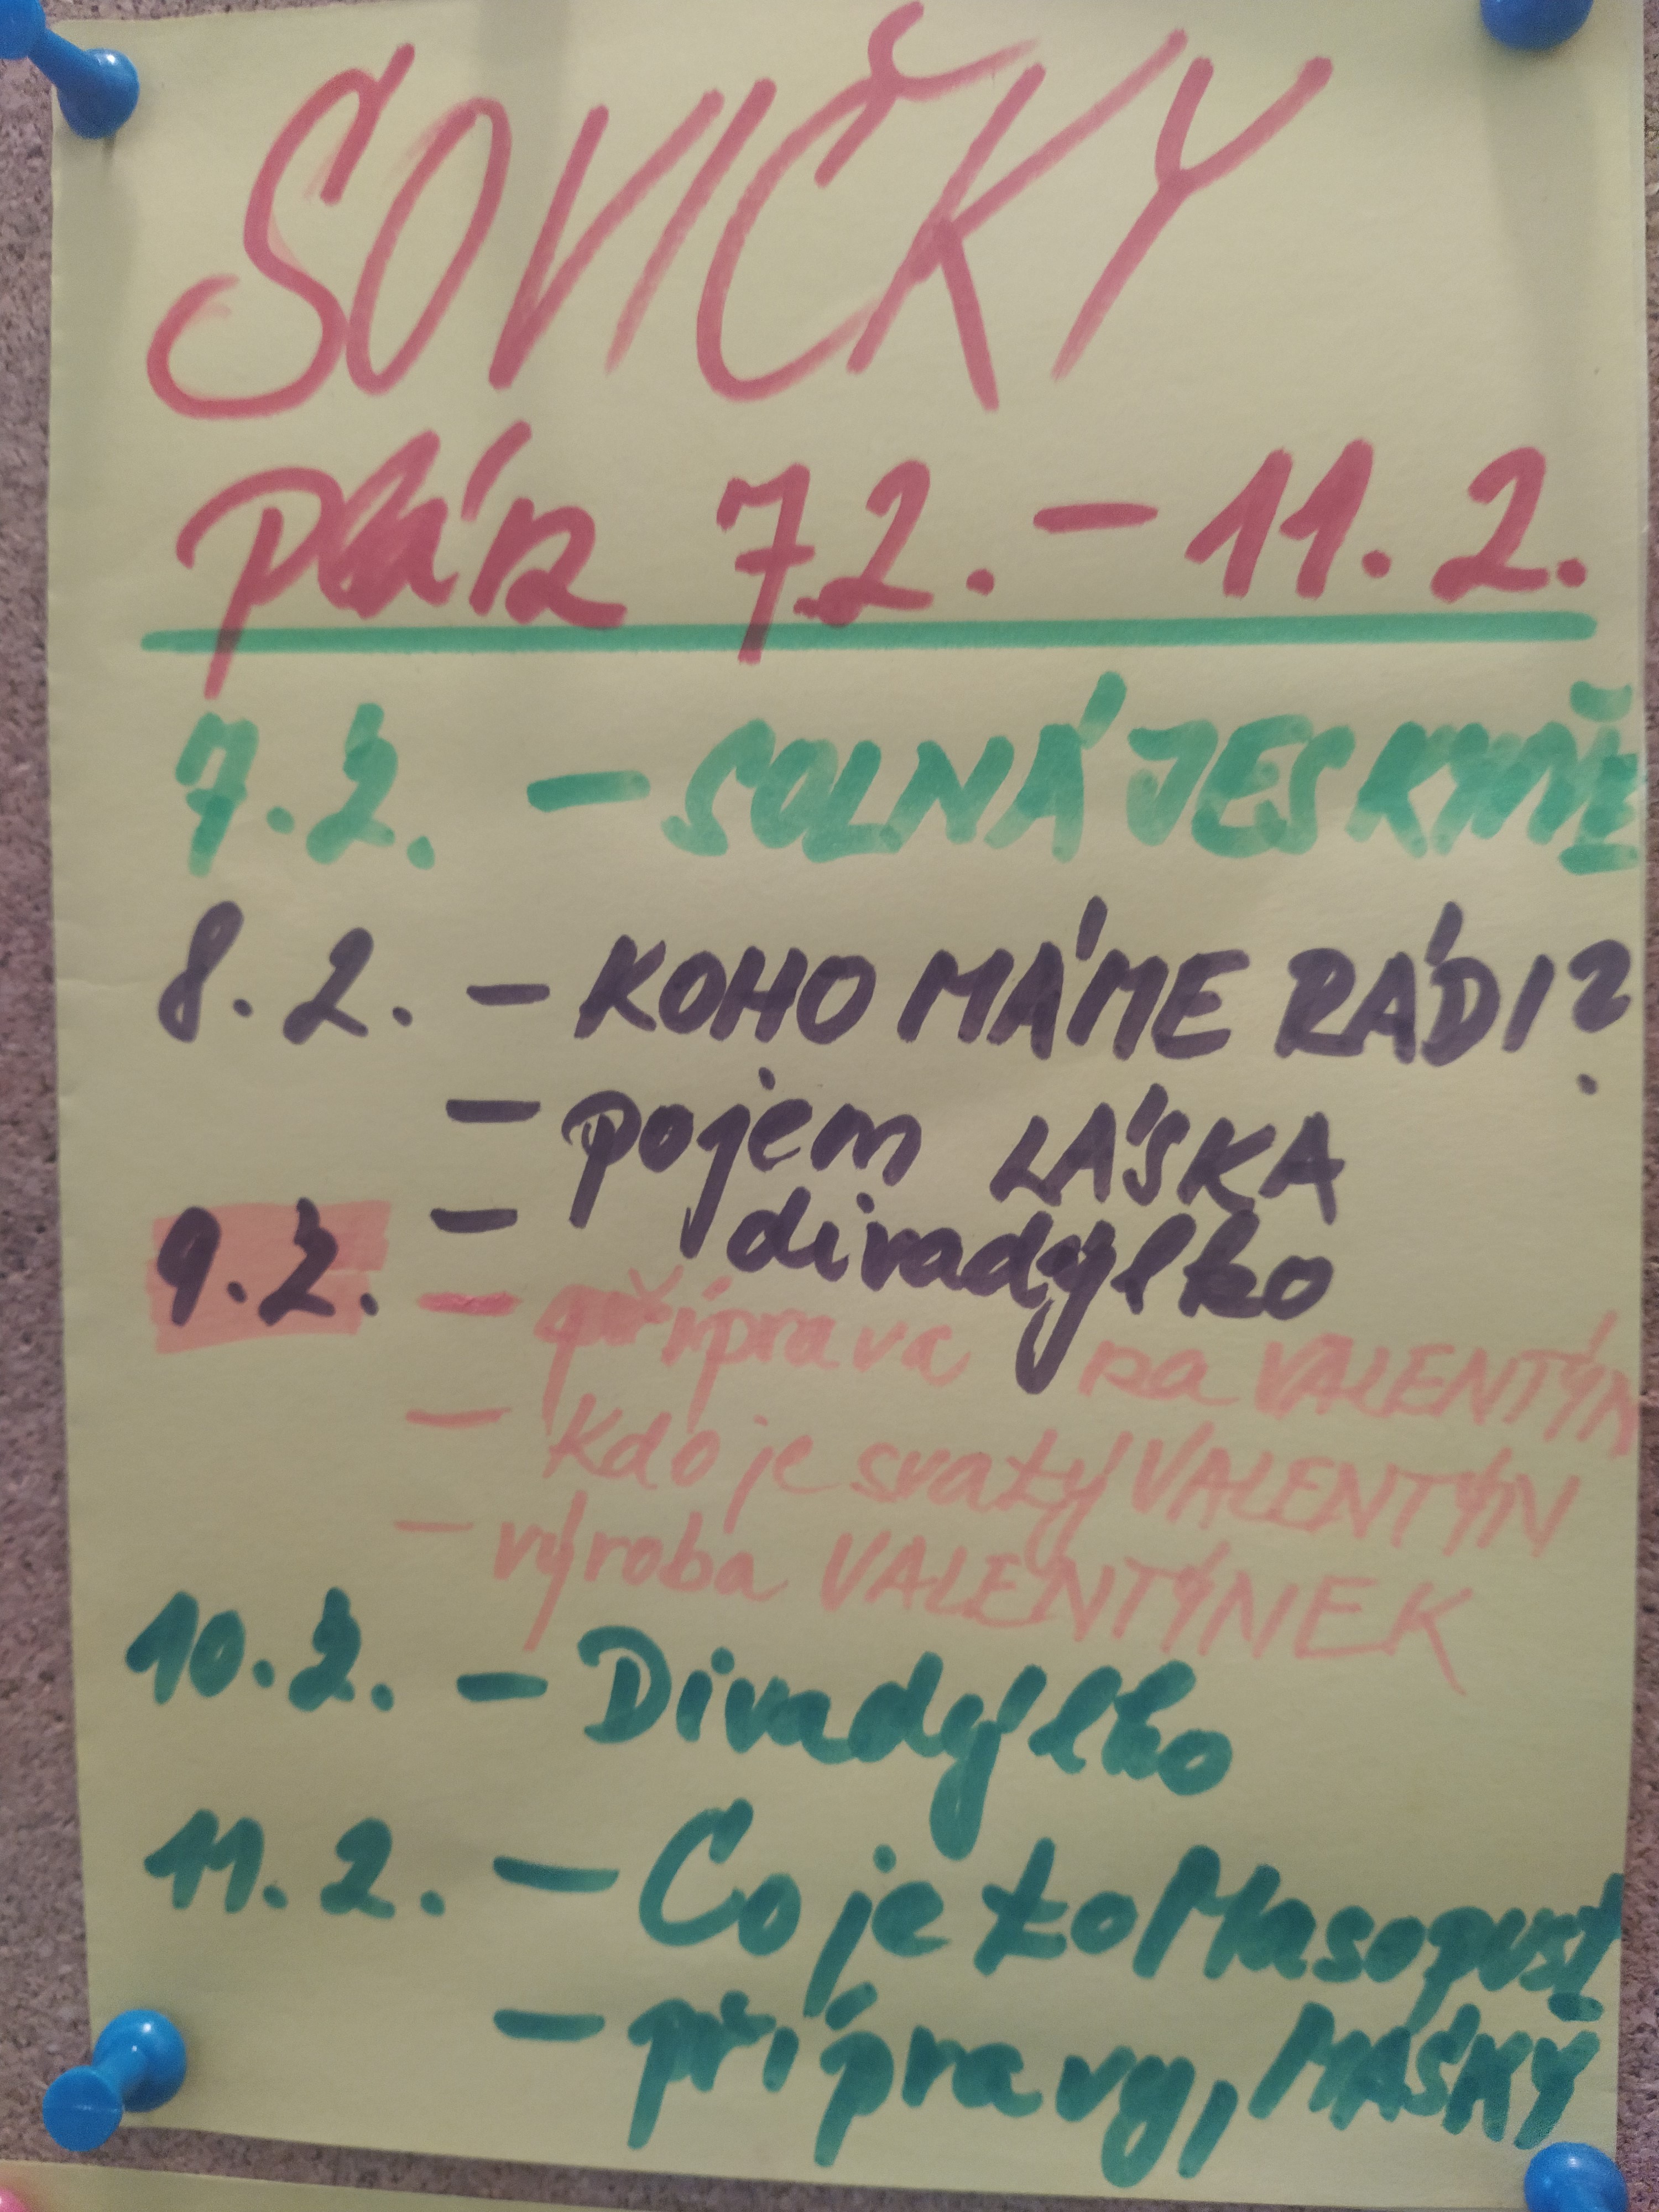 SOVIČKY
plán 7.2. - 11.2.
7.2. - SOLNÁ JESKYNĚ
8.2. - KOHO MÁME RÁDI?
- pojem LÁSKA
- divadýlko
9.2. - příprava na VALENTÝN
- Kdo je svatý VALENTÝN
- výroba VALENTÝNEK
10.2. - Divadýlko
11.2. - Co je to Masopust
- přípravy, MAŠKY